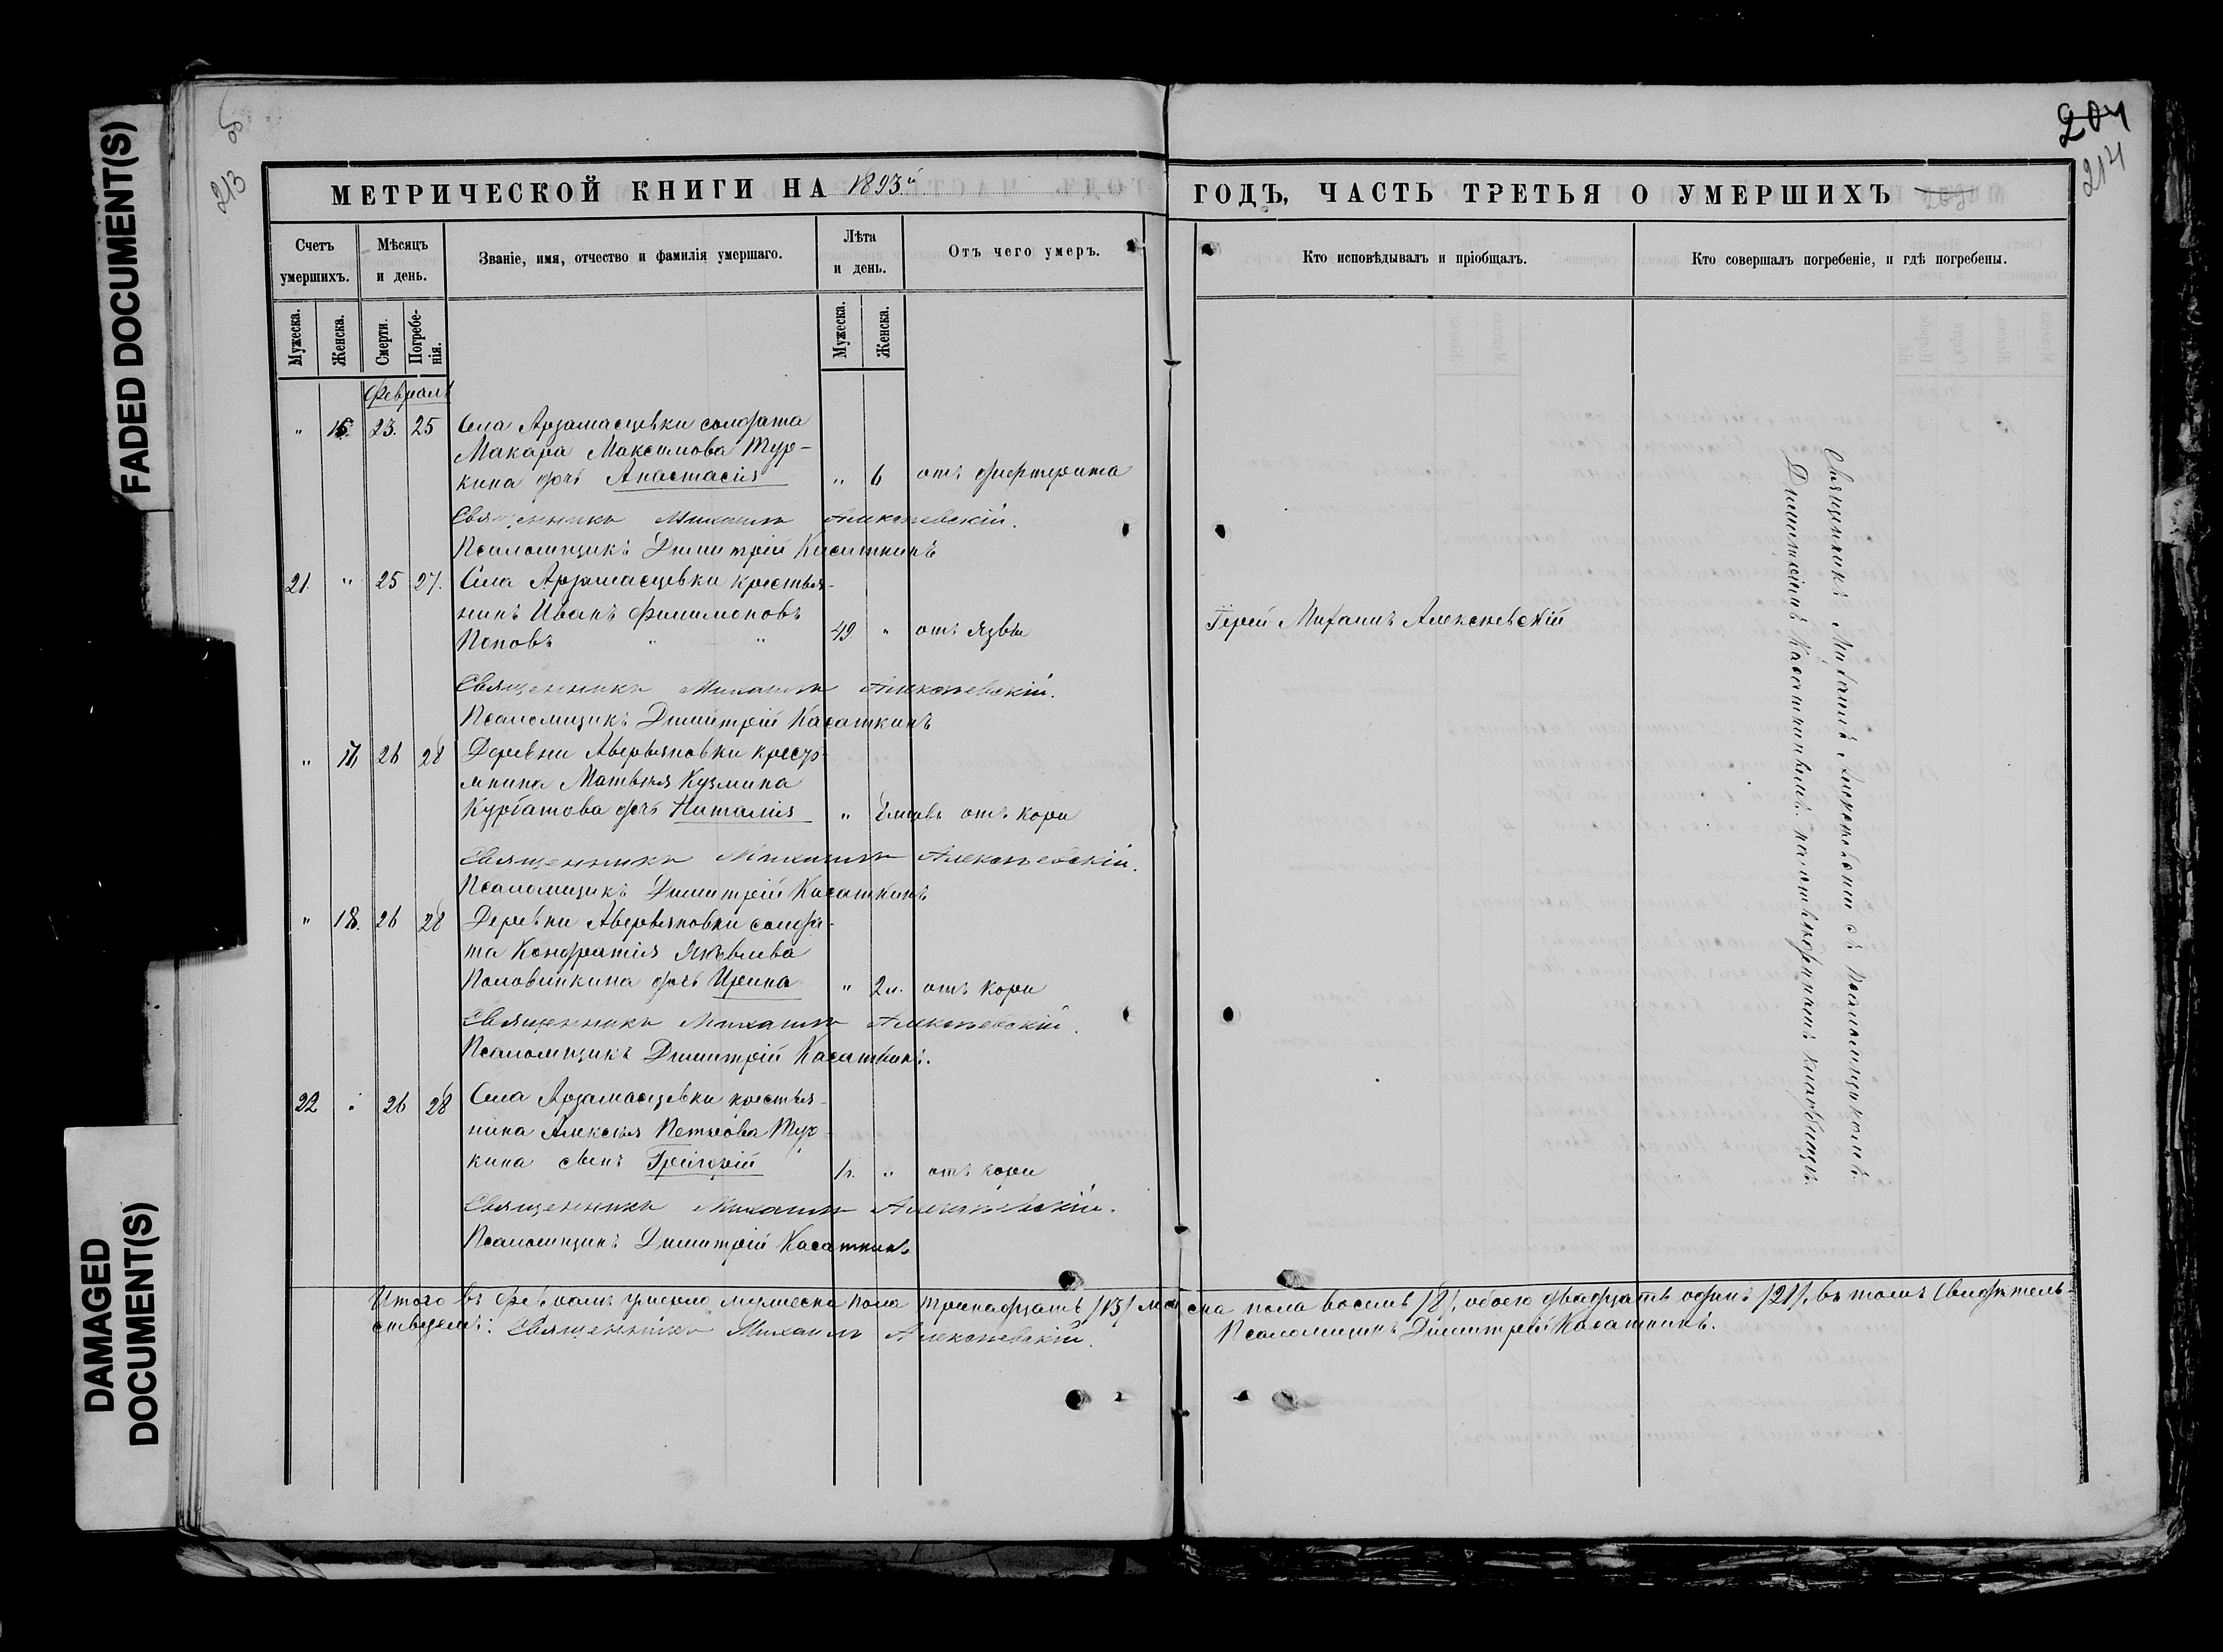 FADED DOCUMENT(S)
DAMAGED
DOCUMENT(S)
213
204
214
МЕТРИЧЕСКОЙ КНИГИ НА 1893й
ГОДЪ, ЧАСТЬ ТРЕТЬЯ О УМЕРШИХЪ
Счетъ умершихъ.
Мѣсяцъ и день.
Званіе, имя, отчество и фамилія умершаго.
Лѣта и день.
Отъ чего умеръ.
Кто исповѣдывалъ и пріобщалъ.
Кто совершалъ погребеніе, и гдѣ погребены.
Мужеска.
Женска.
Смерти.
Погребе-
нія.
Мужеска.
Женска.
Февраль
" 16. 23. 25 Села Арзамасцевки солдата
Макара Максимова Тур-
кина дочь Анастасія " 6 отъ дифтерита
Священникъ Михаилъ Алексѣевскій.
Псаломщикъ Димитрій Касаткинъ
21. " 25 27. Села Арзамасцевки крестья-
нинъ Иванъ Филимоновъ
Поповъ " " 49 " отъ язвы
Іерей Михаилъ Алексѣевскій
Священникъ Михаилъ Алексѣевскій.
Псаломщикъ Димитрій Касаткинъ
" 17. 26 28 Деревни Аверьяновки крестья-
нина Матвѣя Кузмина
Курбатова дочь Наталія " отъ кори
Священникъ Михаилъ Алексѣевскій.
Псаломщикъ Димитрій Касаткинъ
" 18. 26 28 Деревни Аверьяновки солда-
та Кондратія Яковлева
Половинкина дочь Ирина " 2 м. отъ кори
Священникъ Михаилъ Алексѣевскій.
Псаломщикъ Димитрій Касаткинъ.
22 " 26 28 Села Арзамасцевки крестья-
нина Алексѣя Петрова Тур-
кина сынъ Григорій " отъ кори
Священникъ Михаилъ Алексѣевскій.
Псаломщикъ Димитрій Касаткинъ
Священникъ Михаилъ Алексѣевскій съ Псаломщикомъ
Димитріемъ Касаткинымъ. на кладбищѣ.
Итого въ Февралѣ умерло мужеска пола тринадцать /13/ женска пола восемь /8/, обоего двадцать одинъ /21/, въ томъ свидѣтель-
ствуемъ: Священникъ Михаилъ Алексѣевскій. Псаломщикъ Димитрій Касаткинъ.